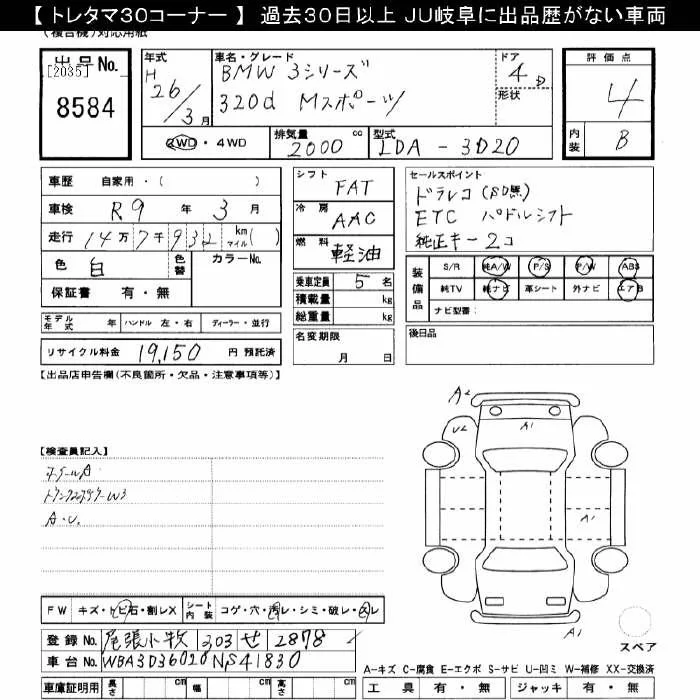 【 トレタマ30コーナー 】 過去30日以上 JU岐阜に出品歴がない車両
(複合機)対応用紙
出品 No.
[2035]
8584
年式
H 26/3月
車名・グレード
BMW 3シリーズ
320d Mスポーツ
ドア
4 D
形状
評価点
4
内装
B
2WD・4WD
排気量
2000 cc
型式
LDA-3D20
車歴 自家用・( )
車検 R9 年 3 月
走行 14万7千932 km マイル( )
色 白
色替
カラーNo.
保証書 有・無
モデル年式 年 ハンドル 左・右 ディーラー・並行
リサイクル料金 19,150 円 預託済
シフト FAT
冷房 AAC
燃料 軽油
乗車定員 5 名
積載量 kg
総重量 kg
名変期限
月 日
セールスポイント
ドラレコ(SD無)
ETC パドルシフト
純正キー2コ
装備品
S/R 純A/W P/S P/W ABS
純TV 純ナビ 革シート 外ナビ エアB
ナビ型番:
後日品
【出品店申告欄(不良箇所・欠品・注意事項等)】
【検査員記入】
A・U.
A2
U2
A1
A1
A1
スペア
FW キズ・トビ石・割レX
シート内装 コゲ・穴・汚レ・シミ・破レ・スレ
登録 No. 尾張小牧 303 せ 2878
車台 No. WBA3D36020NS41830
車庫証明用 長さ cm 幅 cm 高さ cm
A-キズ C-腐食 E-エクボ S-サビ U-凹ミ W-補修 XX-交換済
工具 有・無 ジャッキ 有・無